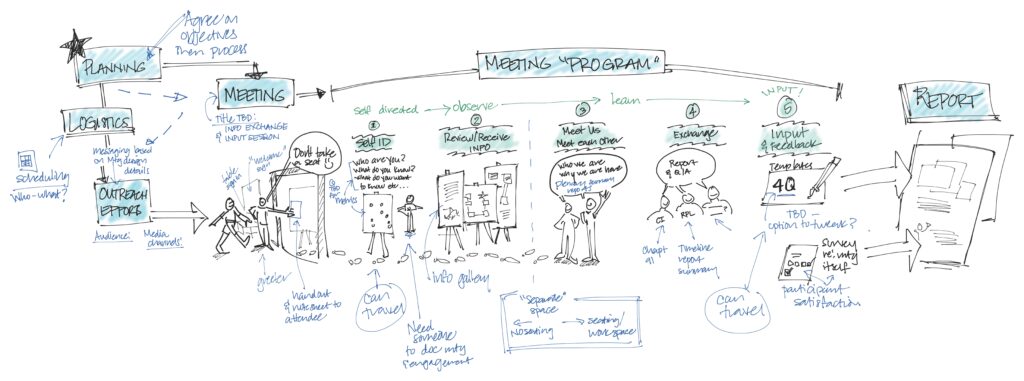 Agree on
objectives
Then process
PLANNING
MEETING
MEETING "PROGRAM"
LOGISTICS
scheduling
Who-what?
messaging based
on Mtg design
details
OUTREACH
EFFORTS
Audience:
Media
channels:
Title TBD:
INFO EXCHANGE
& INPUT SESSION
table
sign in
"Welcome"
sign
Don't take
a seat!
greeter
handout
& factsheet to
attendee
self directed
observe
learn
INPUT!
1
Self ID
Who are you?
What do you know?
What do you want
to know etc...
Can
travel
Need
someone
to doc mtg
& engagement
2
Review/Receive
INFO
info gallery
3
Meet Us
Meet each other
Who we are
why we are here
"Separate"
space
No seating
Seating/
Workspace
4
Exchange
Report
& Q/A
RFL
Timeline
report
summary
5
Input
& Feedback
Templates
4Q
TBD —
option to tweak?
Can
travel
survey
re: mtg
itself
participant
satisfaction
REPORT